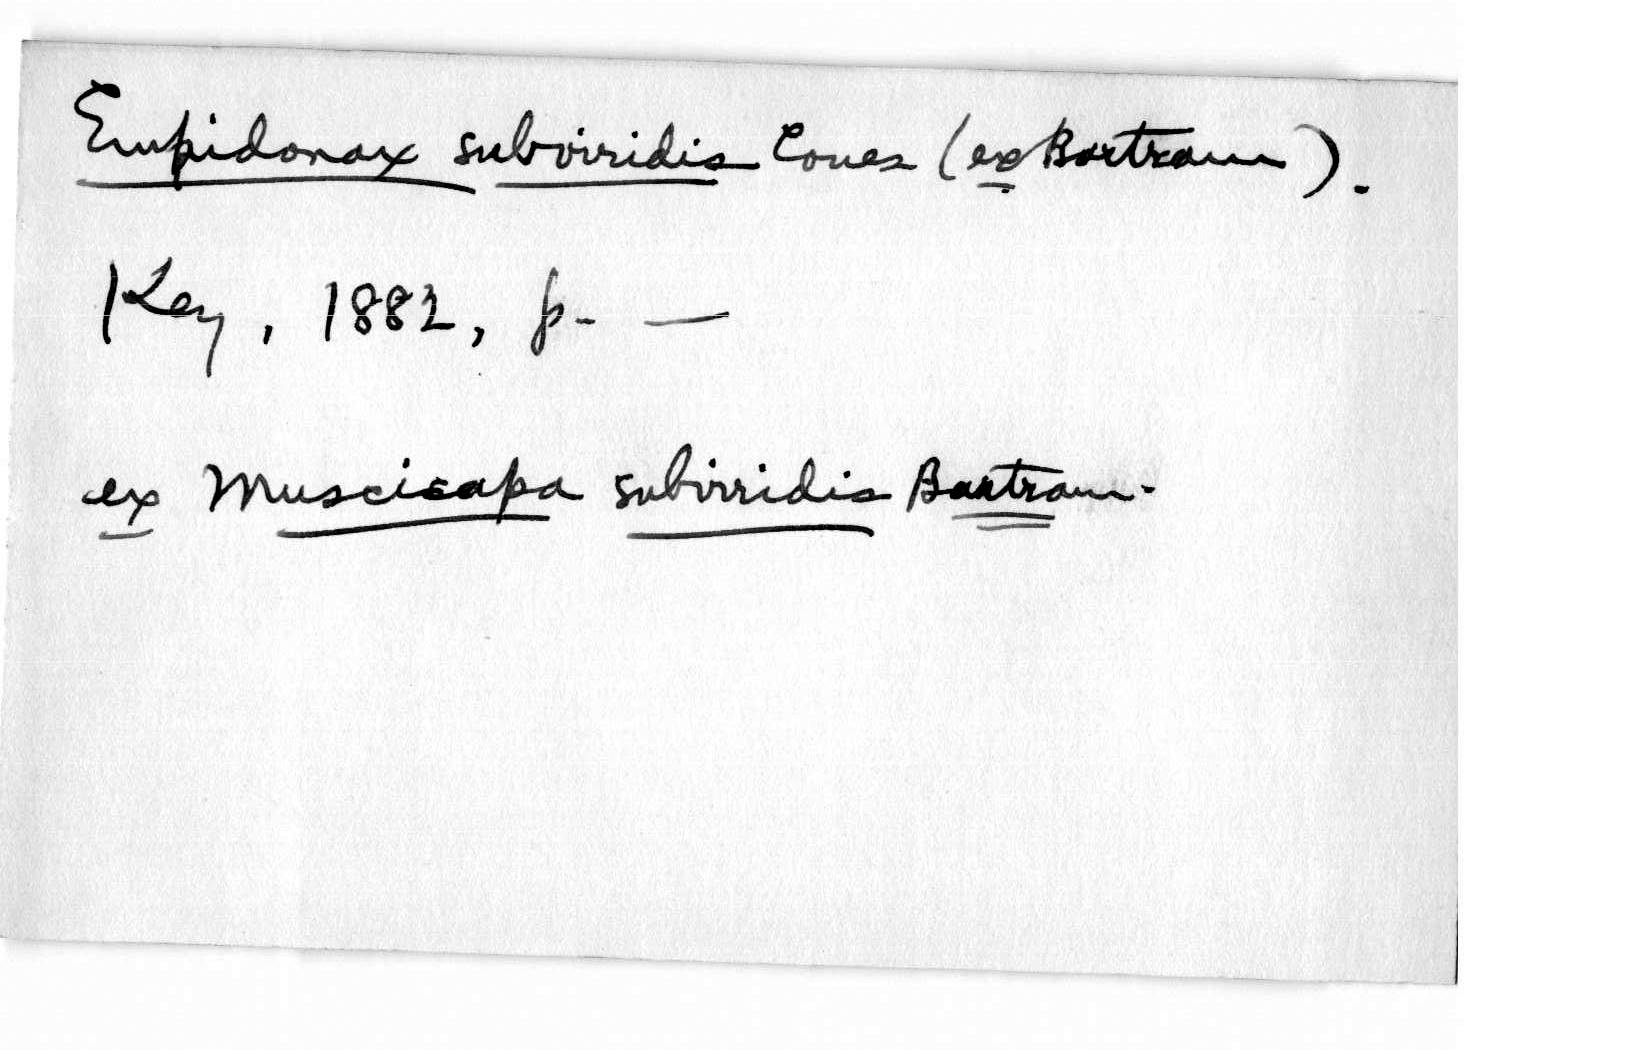 Empidonax subviridis Coues (ex Bartram).
Key, 1882, p. —
ex Muscicapa subviridis Bartram.